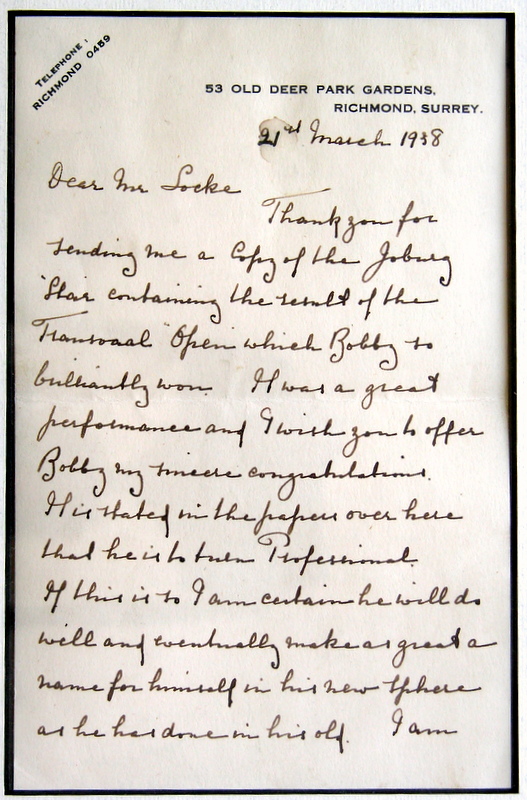 TELEPHONE:
RICHMOND 0459
53 OLD DEER PARK GARDENS,
RICHMOND, SURREY.
21st March 1938
Dear Mr Locke
Thank you for
sending me a Copy of the Joburg
"Star containing the result of the
Transvaal "Open" which Bobby so
brilliantly won. It was a great
performance and I wish you to offer
Bobby my sincere congratulations.
It is stated in the papers over here
that he is to turn Professional.
If this is so I am certain he will do
well and eventually make as great a
name for himself in his new sphere
as he has done in his old. I am